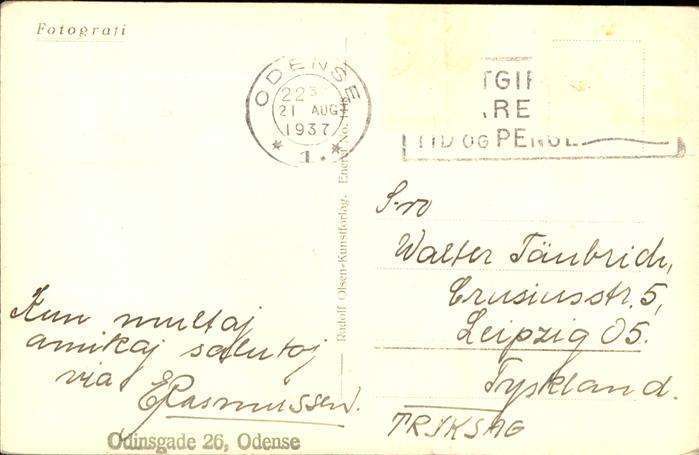 Fotografi
ODENSE
22
21 AUG
1937
* 1. *
TID OG PENGE
Rudolf Olsen-Kunstforlag. Eneret No.
S-ro
Walter Täubrich,
Crusiusstr. 5,
Leipzig O5.
Tyskland.
TRYKSAG
Kun multaj
amikaj salutoj
via
ERasmussen.
Odinsgade 26, Odense